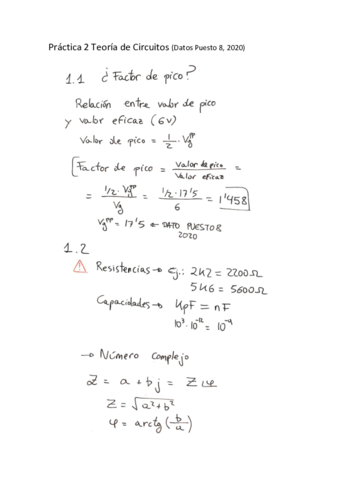 Práctica 2 Teoría de Circuitos (Datos Puesto 8, 2020)
1.1 ¿Factor de pico?
Relación entre valor de pico
y valor eficaz (6V)
Valor de pico = 1/2 · Vg^pp
[Factor de pico = Valor de pico / Valor eficaz =
= 1/2 · Vg^pp / Vg = 1/2 · 17'5 / 6 = 1'458
Vg^pp = 17'5 ← DATO PUESTO 8
2020
1.2
⚠ Resistencias → Ej.: 2K2 = 2200Ω
5K6 = 5600Ω
Capacidades → KpF = nF
10³·10⁻¹² = 10⁻⁹
→ Número complejo
Z = a + bj = Z∠φ
Z = √(a² + b²)
φ = arctg (b/a)